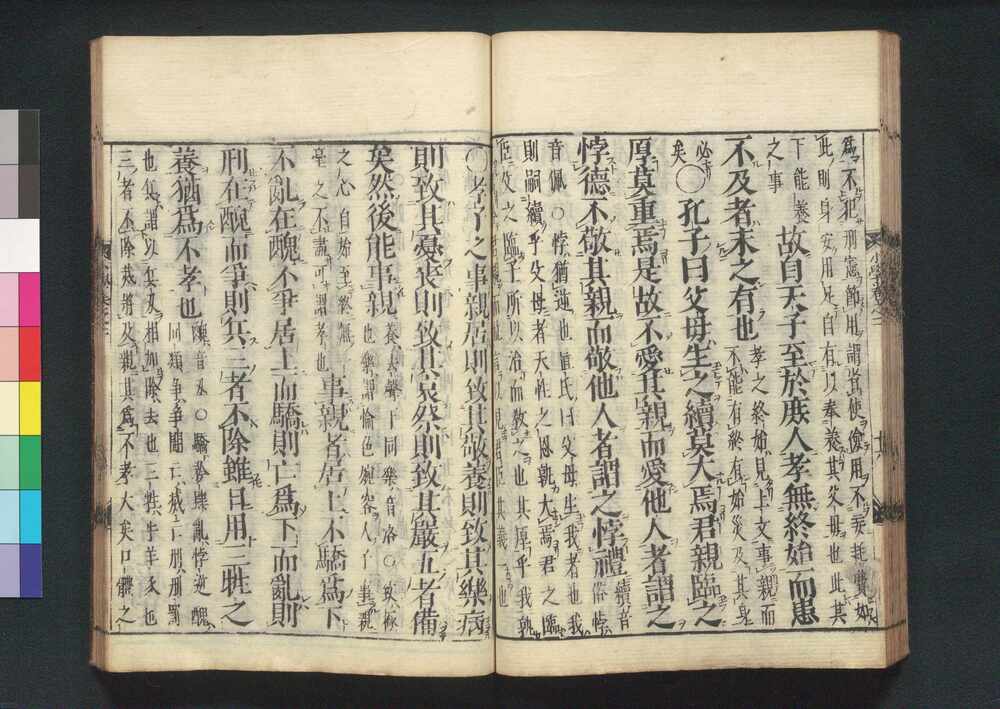 爲不犯刑憲節用謂省使儉用不妄耗費如
此則身安用足自有以奉養其父母也此其
下能養
之事
故自天子至於庶人孝無終始而患
不及者未之有也
孝之終始見上文事親而
不能有終有始災及其身
必
矣
○孔子曰父母生之續莫大焉君親臨之
厚莫重焉是故不愛其親而愛他人者謂之
悖德不敬其親而敬他人者謂之悖禮
續音
俗悖
音佩○悖猶逆也眞氏曰父母生我者也我
則嗣續乎父母者天性之恩孰大焉君之臨
臣父之臨子所以治而教之也其厚乎我孰
○孝子之事親居則致其敬養則致其樂病
則致其憂喪則致其哀祭則致其嚴五者備
矣然後能事親
養去聲下同樂音洛○致極
也樂謂愉色婉容人子事親
之心自始至終無一
毫之不盡可謂孝也
事親者居上不驕爲下
不亂在醜不爭居上而驕則亡爲下而亂則
刑在醜而爭則兵三者不除雖日用三牲之
養猶爲不孝也
○驕矜肆亂悖逆醜
同類爭爭鬪亡滅亡刑刑罰
也兵謂以兵刃相加除去也三牲牛羊豕也
三者不除災將及親其爲不孝大矣口體之